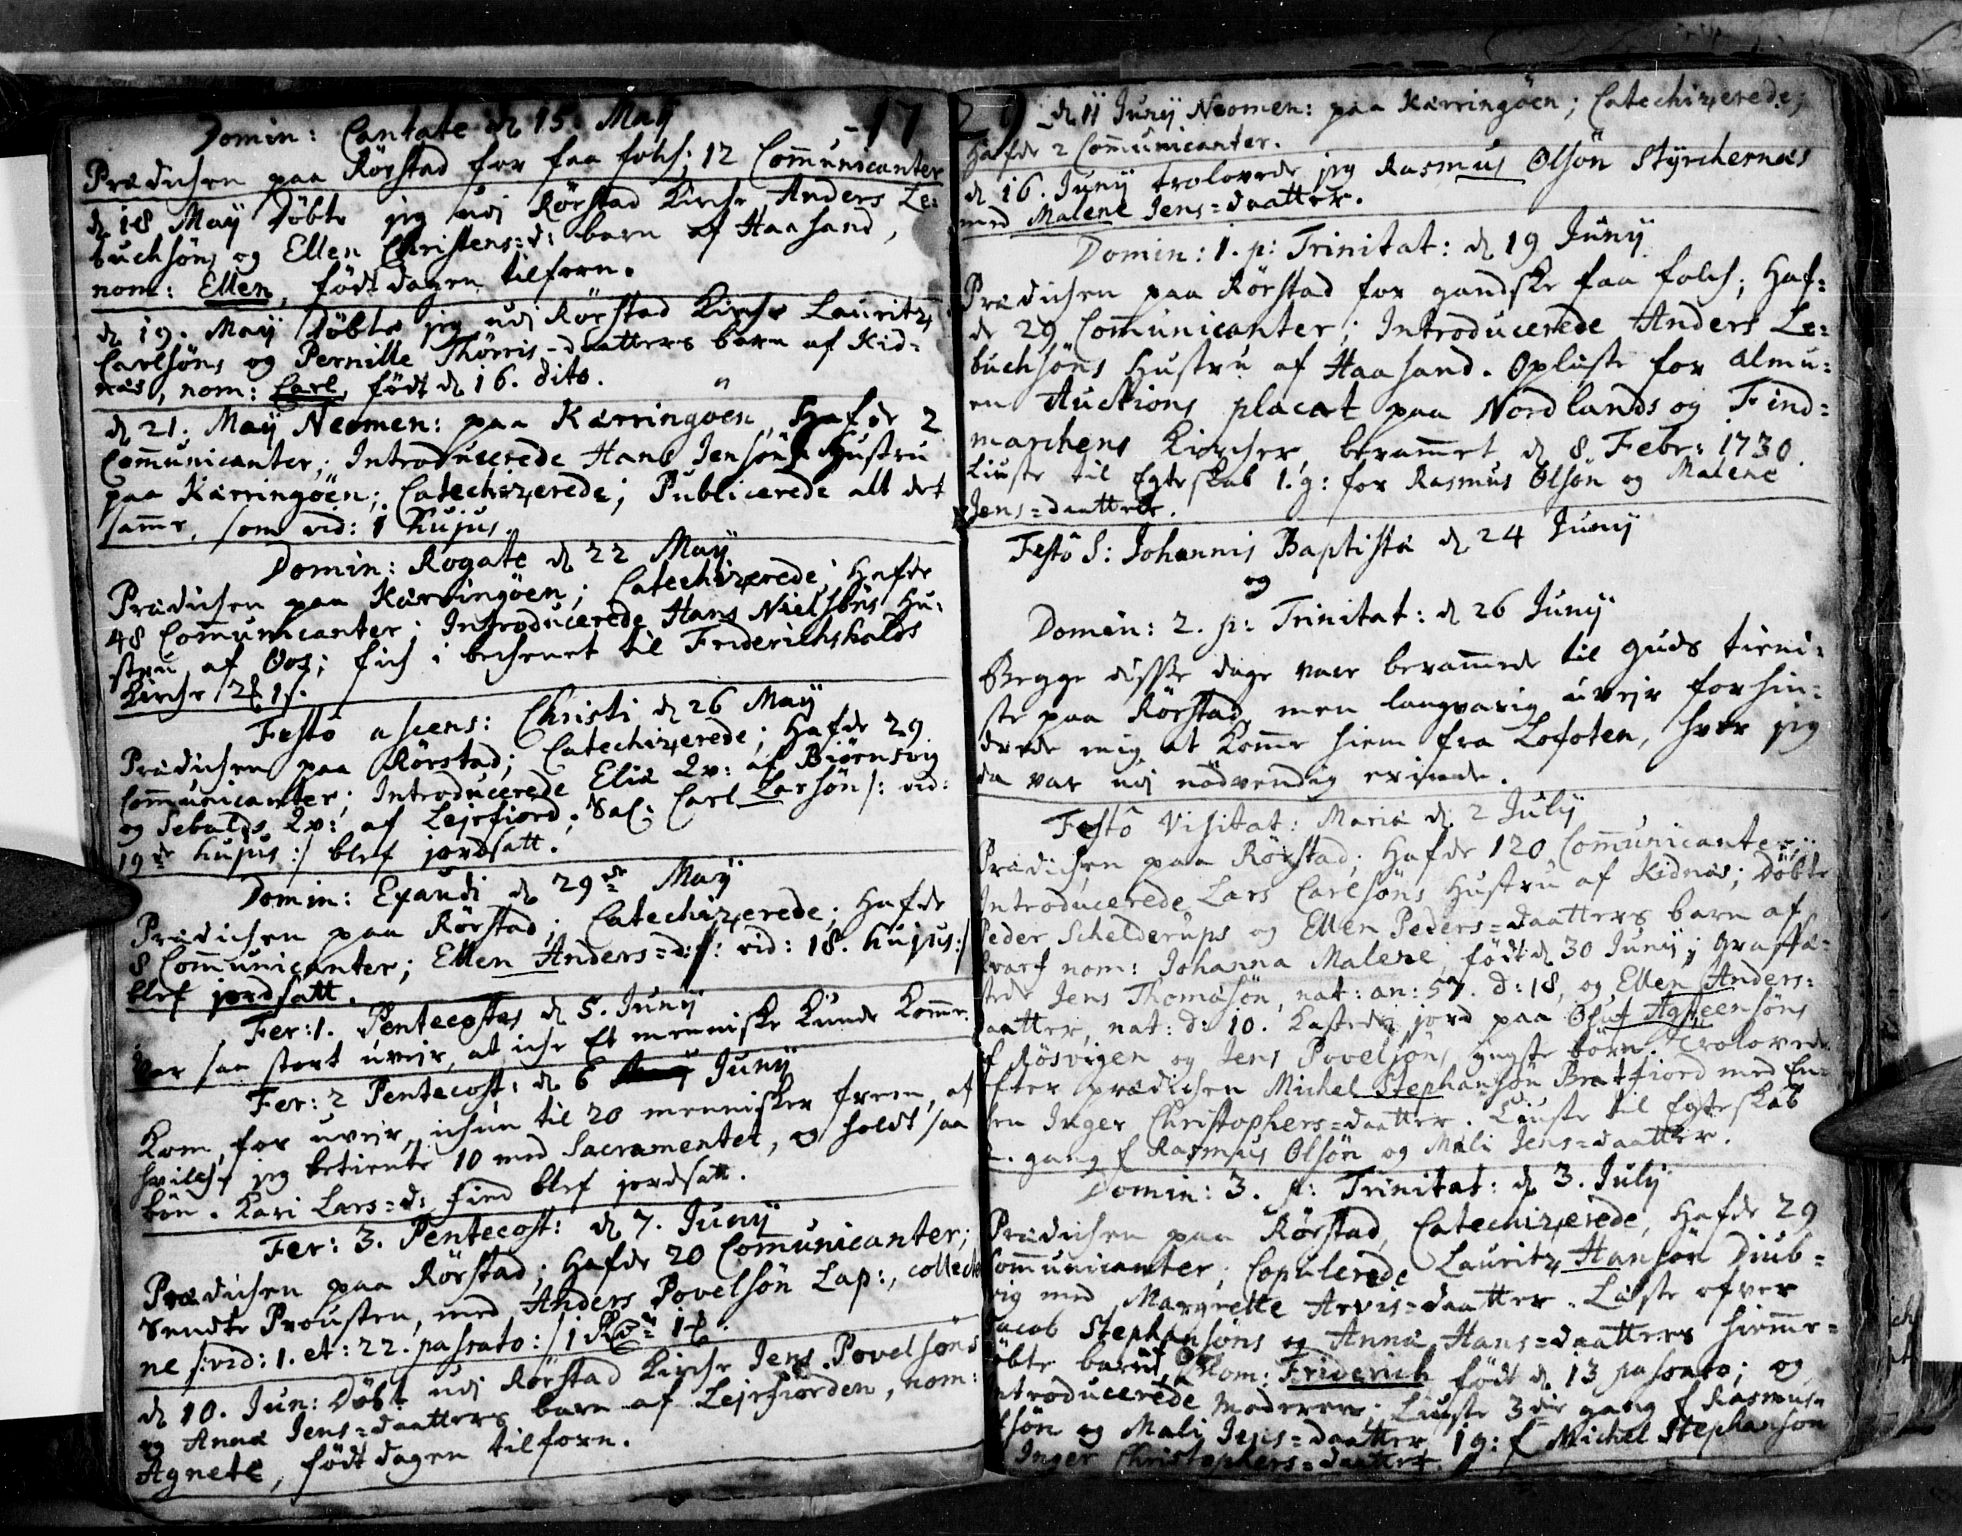 Domin: Cantate d 15. May 17
Prædichen paa Rörstad for faa folch; 12 Communicanter
d 18 May Döbte jeg udj Rörstad Kirche Anders Le:
buchsöns og Ellen Christens=d: barn af Haasand,
nom: Ellen, födt dagen tilforn.
d 19. May Döbte jeg udj Rörstad Kirche Lauritz
Carlsöns og Pernille Thörris-daatters barn af Kid=
næs, nom: Carl, födt d 16. dito.
d 21. May Neomen: paa Kærringöen, Hafde 2
Communicanter; Introducerede Hans Jensöns Hustru
paa Kærringöen; Catechizerede; Publicerede alt det
samme, som vid: 1 hujus.
Domin: Rogate d 22 May
Prædichen paa Kærringöen; Catechizerede; Hafde
48 Communicanter; Introducerede Hans Nielsöns Hu:
stru af Oos; fich i bechenet til Friderichshalds
Kirche
Festo ascens: Christi d 26 May
Prædichen paa Rörstad; Catechizerede; Hafde 29
Communicanter; Introducerede Eliæ Qv: af Biörnsvig
og Sebalds Qv: af Lejrfiord; Sal: Carl Larsön /: vid:
19de hujus :/ blef jordsatt.
Domin: Exaudi d 29de May
Prædichen paa Rörstad; Catechizerede; Hafde
8 Communicanter; Ellen Anders=d: /: vid: 18. hujus :/
blef jordsatt.
Fer: 1. Pentecostes d 5. Junij
Var saa stort uvejr, at iche Et menniske Kunde Komme.
Fer: 2 Pentecost: d 6 Junij
Kom, for uvejr, ichun til 20 mennisker frem, af
hvilche jeg betiente 10 med Sacramentet, og holdt saa
bön. Kari Lars=d: Find blef jordsatt.
Fer: 3. Pentecost: d 7. Junij
Prædichen paa Rörstad; Hafde 20 Communicanter;
Sendte Prousten, med Anders Povelsön Lap:, collecte
ne /: vid: 1. et: 22. passato :/
d 10. Jun: Döbt udj Rörstad Kirche Jens Povelsöns
og Anna Jens=daatters barn af Lejrfiorden, nom:
Agnete, födt dagen tilforn.
29 d 11 Junij Neomen: paa Kærringöen; Catechizerede;
Hafde 2 Communicanter.
d 16. Junij trolovede jeg Rasmus Olsön Styrchernæs
med Malene Jens=daatter.
Domin: 1. p: Trinitat: d 19 Junij
Prædichen paa Rörstad for gandske faa folch; Haf=
de 29 Communicanter; Introducerede Anders Le=
buchsöns Hustru af Haasand. Opliuste for Almu=
en Auctions placat paa Nordlands og Find=
marchens Kircher, berammet d 8. Febr: 1730.
Liuste til Egteskab 1. g: for Rasmus Olsön og Malene
Jens=daatter.
Festo S: Johannis Baptistæ d 24 Junij
og
Domin: 2. p: Trinitat: d 26 Junij
Begge disse dage vare berammede til guds tieni=
ste paa Rörstad, men langvarig uvejr forhin=
drede mig at Komme hiem fra Lofoten, hvor jeg
da var udj nödvendig erinde.
Festo Visitat: Mariæ d 2 July
Prædichen paa Rörstad; Hafde 120 Communicanter;
Introducerede Lars Carlsöns Hustru af Kidnæs; Döbte
Peder Schelderups og Ellen Peders=daatters barn af
nom: Johanna Malene, födt d 30 Junij; Graffæ=
stede Jens Thomasön, nat: an: 57. d: 18, og Ellen Anders=
daatter, nat: d: 10. Kastede jord paa Oluf Agsteensöns
af Rösvigen og Jens Povelsöns yngste börn. Trolovede
Efter prædichen Michel Stephansön Bratfiord med En=
Inger Christophers=daatter. Liuste til Egteskab
2. gang f Rasmus Olsön og Mali Jens=daatter.
Domin: 3. p: Trinitat: d 3. July
Prædichen paa Rörstad, Catechizerede, Hafde 29
Communicanter; Copulerede Lauritz Hansön Diub=
vig med Margrette Arvis=daatter. Læste ofver
Jacob Stephansöns og Anna Hans=daatters hiemme=
döbte barn, nom: Friderich födt d 13 passato; og
Introducerede Moderen; Liuste 3die gang f Rasmus
Olsön og Mali Jens=daatter, 1 g: f Michel Stephansön
Inger Christophers=daatter.